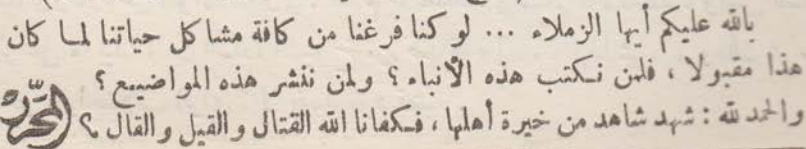 بالله عليكم أيها الزملاء ... لو كنا فرغنا من كافة مشاكل حياتنا لما كان
هذا مقبولا ، فلمن نكتب هذه الأنباء ؟ ولمن ننشر هذه المواضيع ؟
والحمد لله : شهد شاهد من خيرة أهلها ، فكفانا الله القتال والقيل والقال ؟ (المحرر)